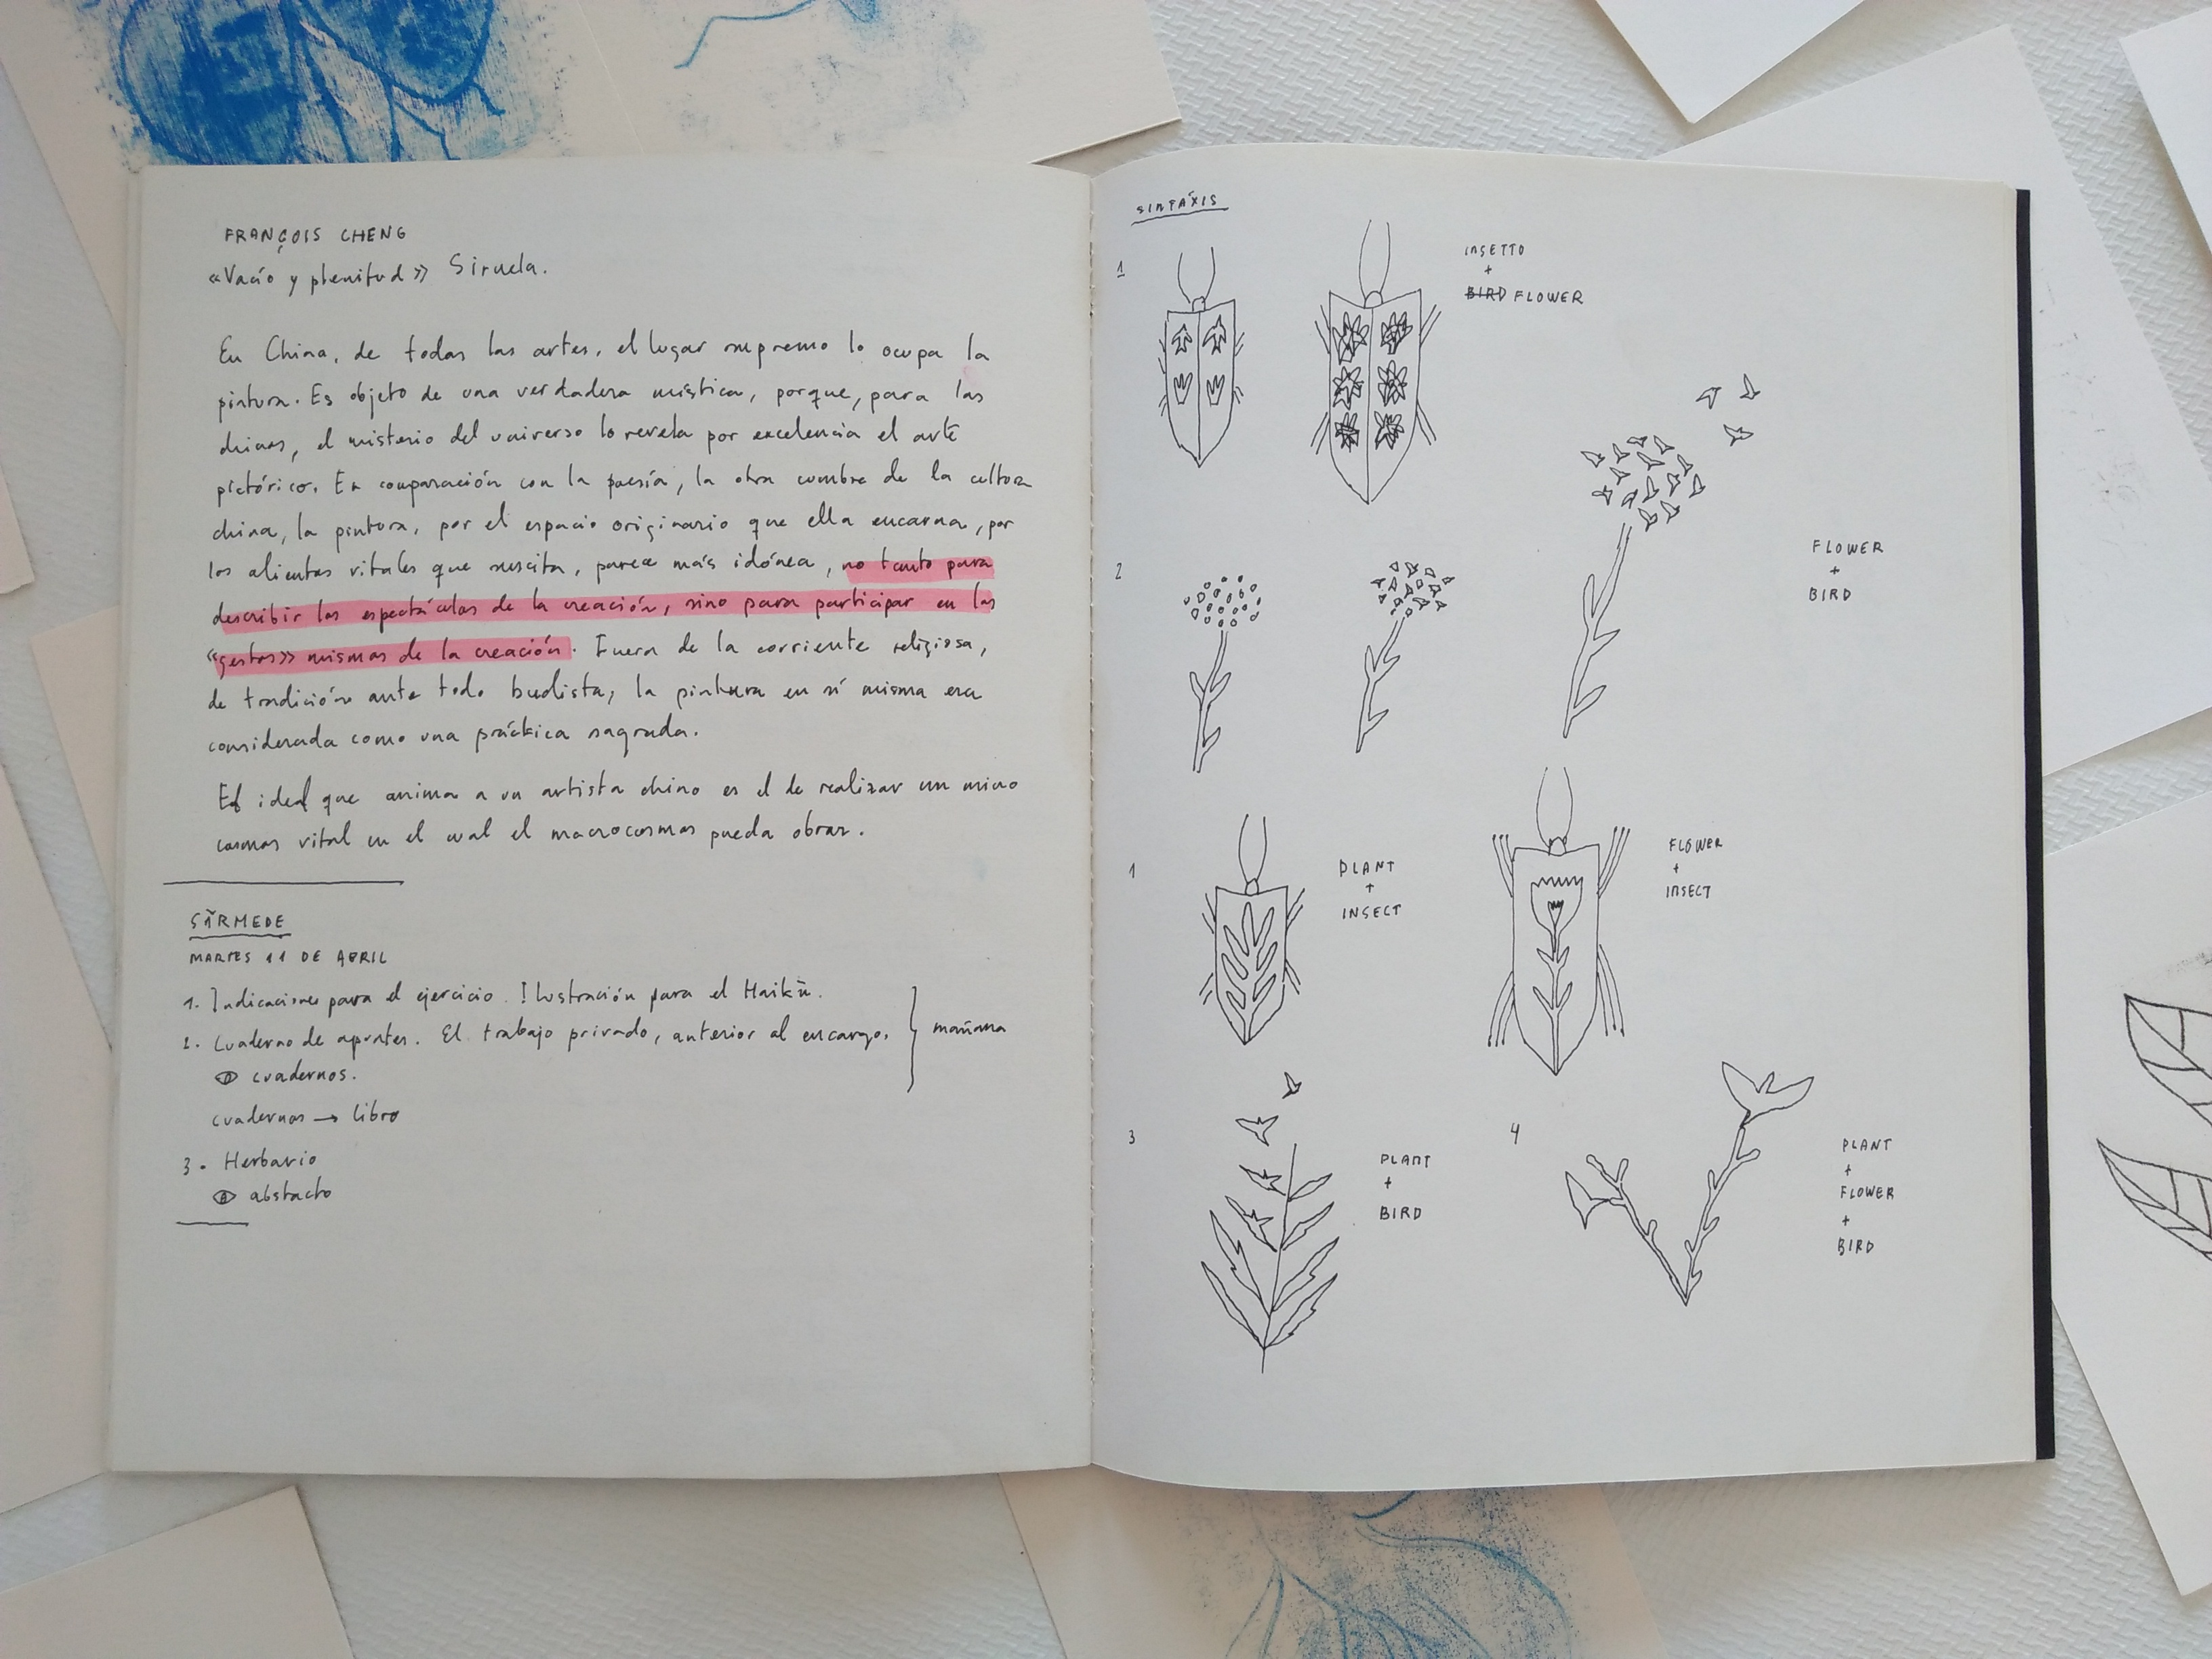 FRANÇOIS CHENG
«Vacío y plenitud» Siruela.
En China, de todas las artes, el lugar supremo lo ocupa la
pintura. Es objeto de una verdadera mística, porque, para los
chinos, el misterio del universo lo revela por excelencia el arte
pictórico. En comparación con la poesía, la otra cumbre de la cultura
china, la pintura, por el espacio originario que ella encarna, por
los alientos vitales que suscita, parece más idónea, no tanto para
describir los espectáculos de la creación, sino para participar en los
«gestos» mismos de la creación. Fuera de la corriente religiosa,
de tradición ante todo budista, la pintura en sí misma era
considerada como una práctica sagrada.
El ideal que anima a un artista chino es el de realizar un micro
cosmos vital en el cual el macrocosmos pueda obrar.
SÀRMEDE
MARTES 11 DE ABRIL
1. Indicaciones para el ejercicio. Ilustración para el Haiku.
2. Cuaderno de apuntes. El trabajo privado, anterior al encargo.
mañana
cuadernos.
cuadernos → libro
3. Herbario
abstacto
SINTÁXIS
1
INSETTO
+
BIRD FLOWER
2
FLOWER
+
BIRD
1
PLANT
+
INSECT
FLOWER
+
INSECT
3
PLANT
+
BIRD
4
PLANT
+
FLOWER
+
BIRD